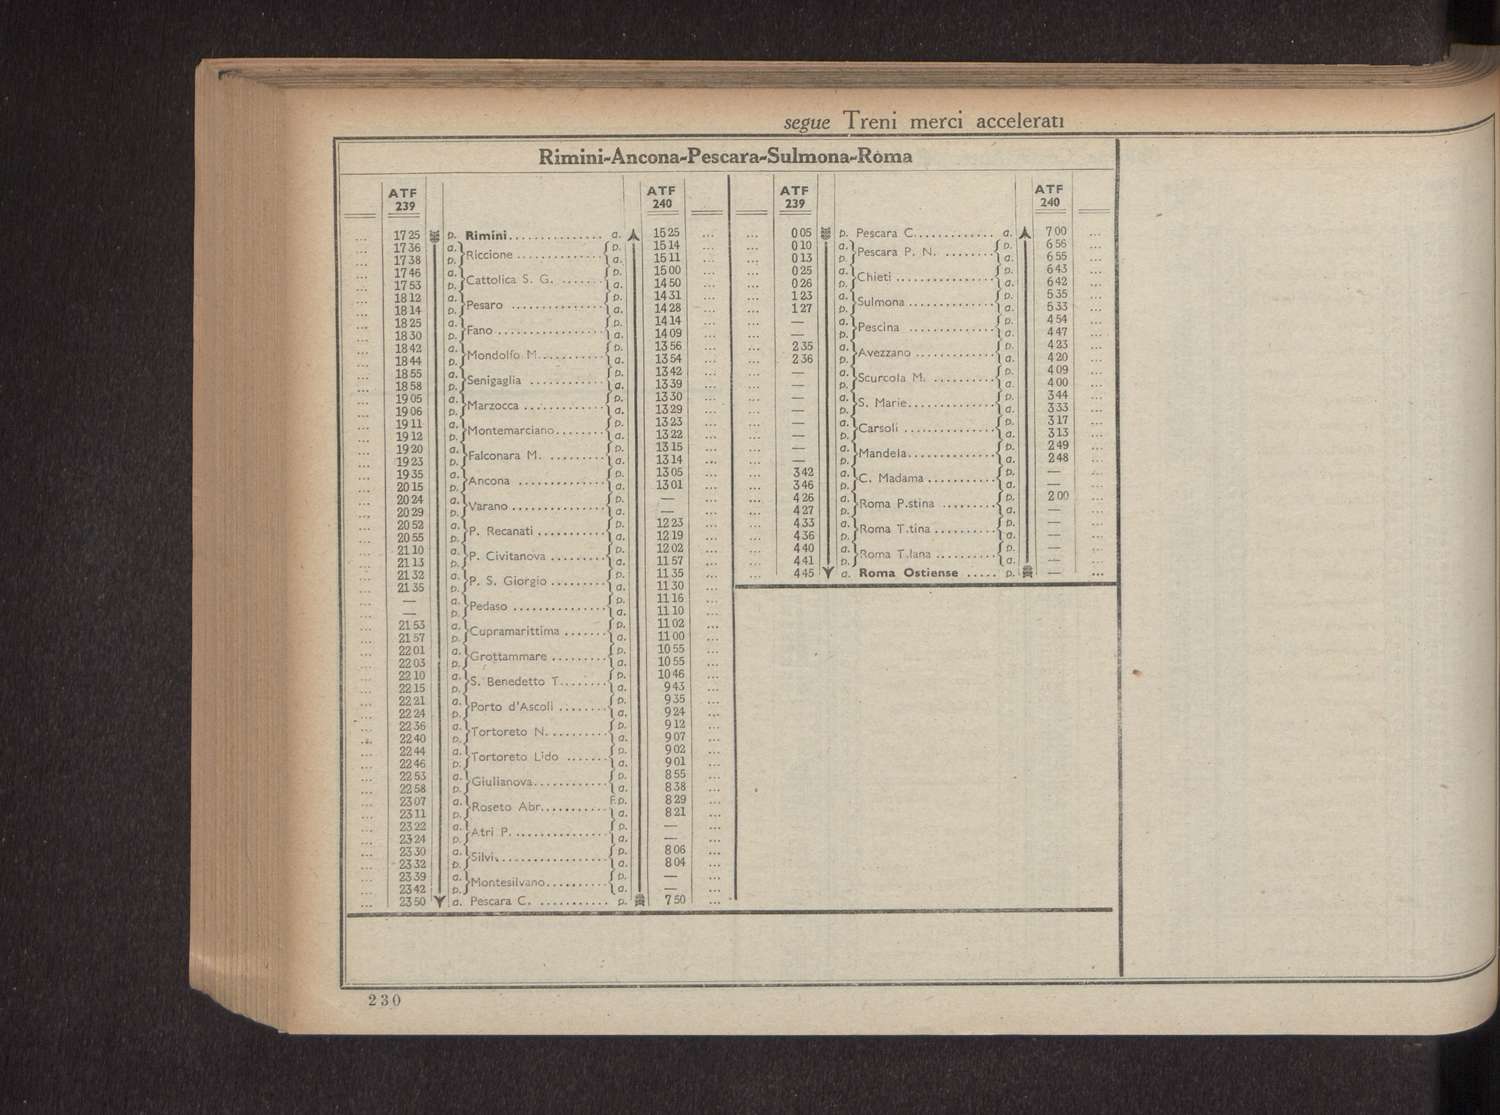 segue Treni merci accelerati
Rimini-Ancona-Pescara-Sulmona-Roma
ATF 239 ATF 240
17 25 p. Rimini a. 15 25
17 36 a. Riccione p. 15 14
17 38 p. a. 15 11
17 46 a. Cattolica S. G. p. 15 00
17 53 p. a. 14 50
18 12 a. Pesaro p. 14 31
18 14 p. a. 14 28
18 25 a. Fano p. 14 14
18 30 p. a. 14 09
18 42 a. Mondolfo M. p. 13 56
18 44 p. a. 13 54
18 55 a. Senigaglia p. 13 42
18 58 p. a. 13 39
19 05 a. Marzocca p. 13 30
19 06 p. a. 13 29
19 11 a. Montemarciano p. 13 23
19 12 p. a. 13 22
19 20 a. Falconara M. p. 13 15
19 23 p. a. 13 14
19 35 a. Ancona p. 13 05
20 15 p. a. 13 01
20 24 a. Varano p. —
20 29 p. a. —
20 52 a. P. Recanati p. 12 23
20 55 p. a. 12 19
21 10 a. P. Civitanova p. 12 02
21 13 p. a. 11 57
21 32 a. P. S. Giorgio p. 11 35
21 35 p. a. 11 30
— a. Pedaso p. 11 16
— p. a. 11 10
21 53 a. Cupramarittima p. 11 02
21 57 p. a. 11 00
22 01 a. Grottammare p. 10 55
22 03 p. a. 10 55
22 10 a. S. Benedetto T. p. 10 46
22 15 p. a. 9 43
22 21 a. Porto d'Ascoli p. 9 35
22 24 p. a. 9 24
22 36 a. Tortoreto N. p. 9 12
22 40 p. a. 9 07
22 44 a. Tortoreto Lido p. 9 02
22 46 p. a. 9 01
22 53 a. Giulianova p. 8 55
22 58 p. a. 8 38
23 07 a. Roseto Abr. p. 8 29
23 11 p. a. 8 21
23 22 a. Atri P. p. —
23 24 p. a. —
23 30 a. Silvi p. 8 06
23 32 p. a. 8 04
23 39 a. Montesilvano p. —
23 42 p. a. —
23 50 a. Pescara C. p. 7 50
ATF 239 ATF 240
0 05 p. Pescara C. a. 7 00
0 10 a. Pescara P. N. p. 6 56
0 13 p. a. 6 55
0 25 a. Chieti p. 6 43
0 26 p. a. 6 42
1 23 a. Sulmona p. 5 35
1 27 p. a. 5 33
— a. Pescina p. 4 54
— p. a. 4 47
2 35 a. Avezzano p. 4 23
2 36 p. a. 4 20
— a. Scurcola M. p. 4 09
— p. a. 4 00
— a. S. Marie p. 3 44
— p. a. 3 33
— a. Carsoli p. 3 17
— p. a. 3 13
— a. Mandela p. 2 49
— p. a. 2 48
3 42 a. C. Madama p. —
3 46 p. a. —
4 26 a. Roma P.stina p. 2 00
4 27 p. a. —
4 33 a. Roma T.tina p. —
4 36 p. a. —
4 40 a. Roma T.lana p. —
4 41 p. a. —
4 45 a. Roma Ostiense p. —
230